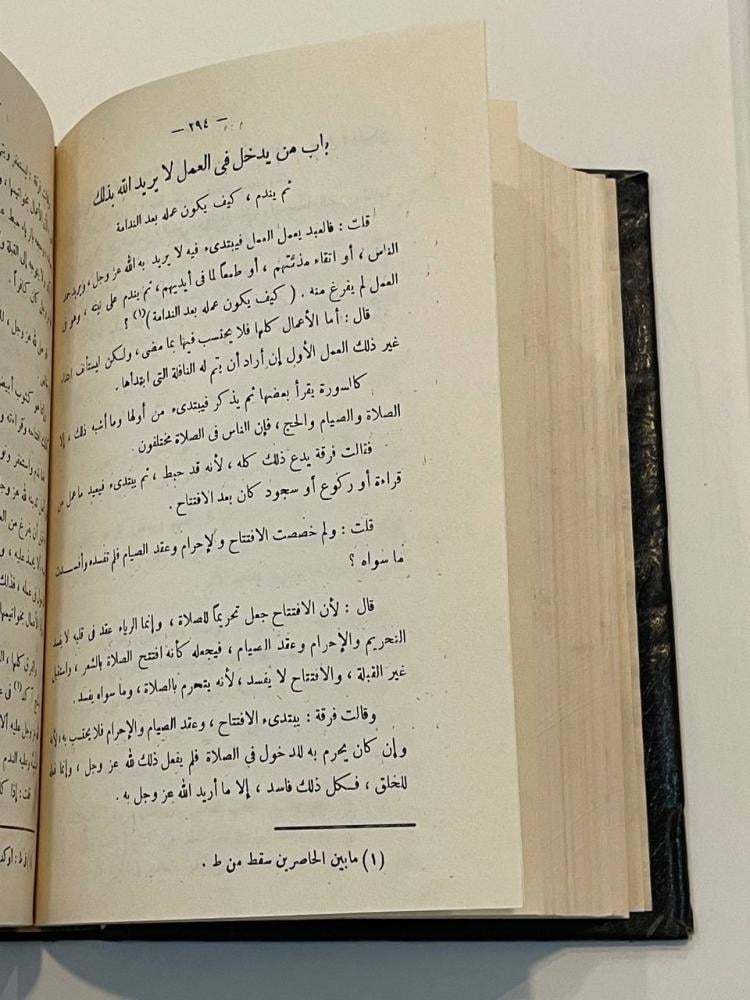 — ٢٩٤ —
باب من يدخل فى العمل لا يريد الله بذلك
ثم يندم ، كيف يكون عمله بعد الندامة
قلت : فالعبد يعمل العمل فيبتدىء فيه لا يريد به الله عز وجل ، ويريد حمد
الناس ، أو اتقاء مذمّتهم ، أو طمعاً لما فى أيديهم ، ثم يندم على نيته ، وهو فى
العمل لم يفرغ منه . ( كيف يكون عمله بعد الندامة )(١) ؟
قال : أما الأعمال كلها فلا يحتسب فيها بما مضى ، ولكن ليستأنف ابتداء
غير ذلك العمل الأول إن أراد أن يتم له النافلة التى ابتدأها .
كالسورة يقرأ بعضها ثم يذكر فيبتدىء من أولها وما أشبه ذلك ، إلا
الصلاة والصيام والحج ، فإن الناس فى الصلاة مختلفون .
فقالت فرقة يدع ذلك كله ، لأنه قد حبط ، ثم يبتدىء فيعيد ما عمل من
قراءة أو ركوع أو سجود كان بعد الافتتاح .
قلت : ولم خصصت الافتتاح والإحرام وعقد الصيام فلم تفسده وأفسدت
ما سواه ؟
قال : لأن الافتتاح جعل تحريماً للصلاة ، وإنما الرياء عقد فى قلبه لا يفسد
التحريم والإحرام وعقد الصيام ، فيجعله كأنه افتتح الصلاة بالشعر ، واستقبل
غير القبلة ، والافتتاح لا يفسد ، لأنه يتحرم بالصلاة ، وما سواه يفسد .
وقالت فرقة : يبتدىء الافتتاح ، وعقد الصيام والإحرام فلا يحتسب به ، لأنه
وإن كان يحرم به للدخول في الصلاة فلم يفعل ذلك لله عز وجل ، وإنما فعله
للخلق ، فكل ذلك فاسد ، إلا ما أريد الله عز وجل به .
(١) ما بين الحاصرين سقط من ط .